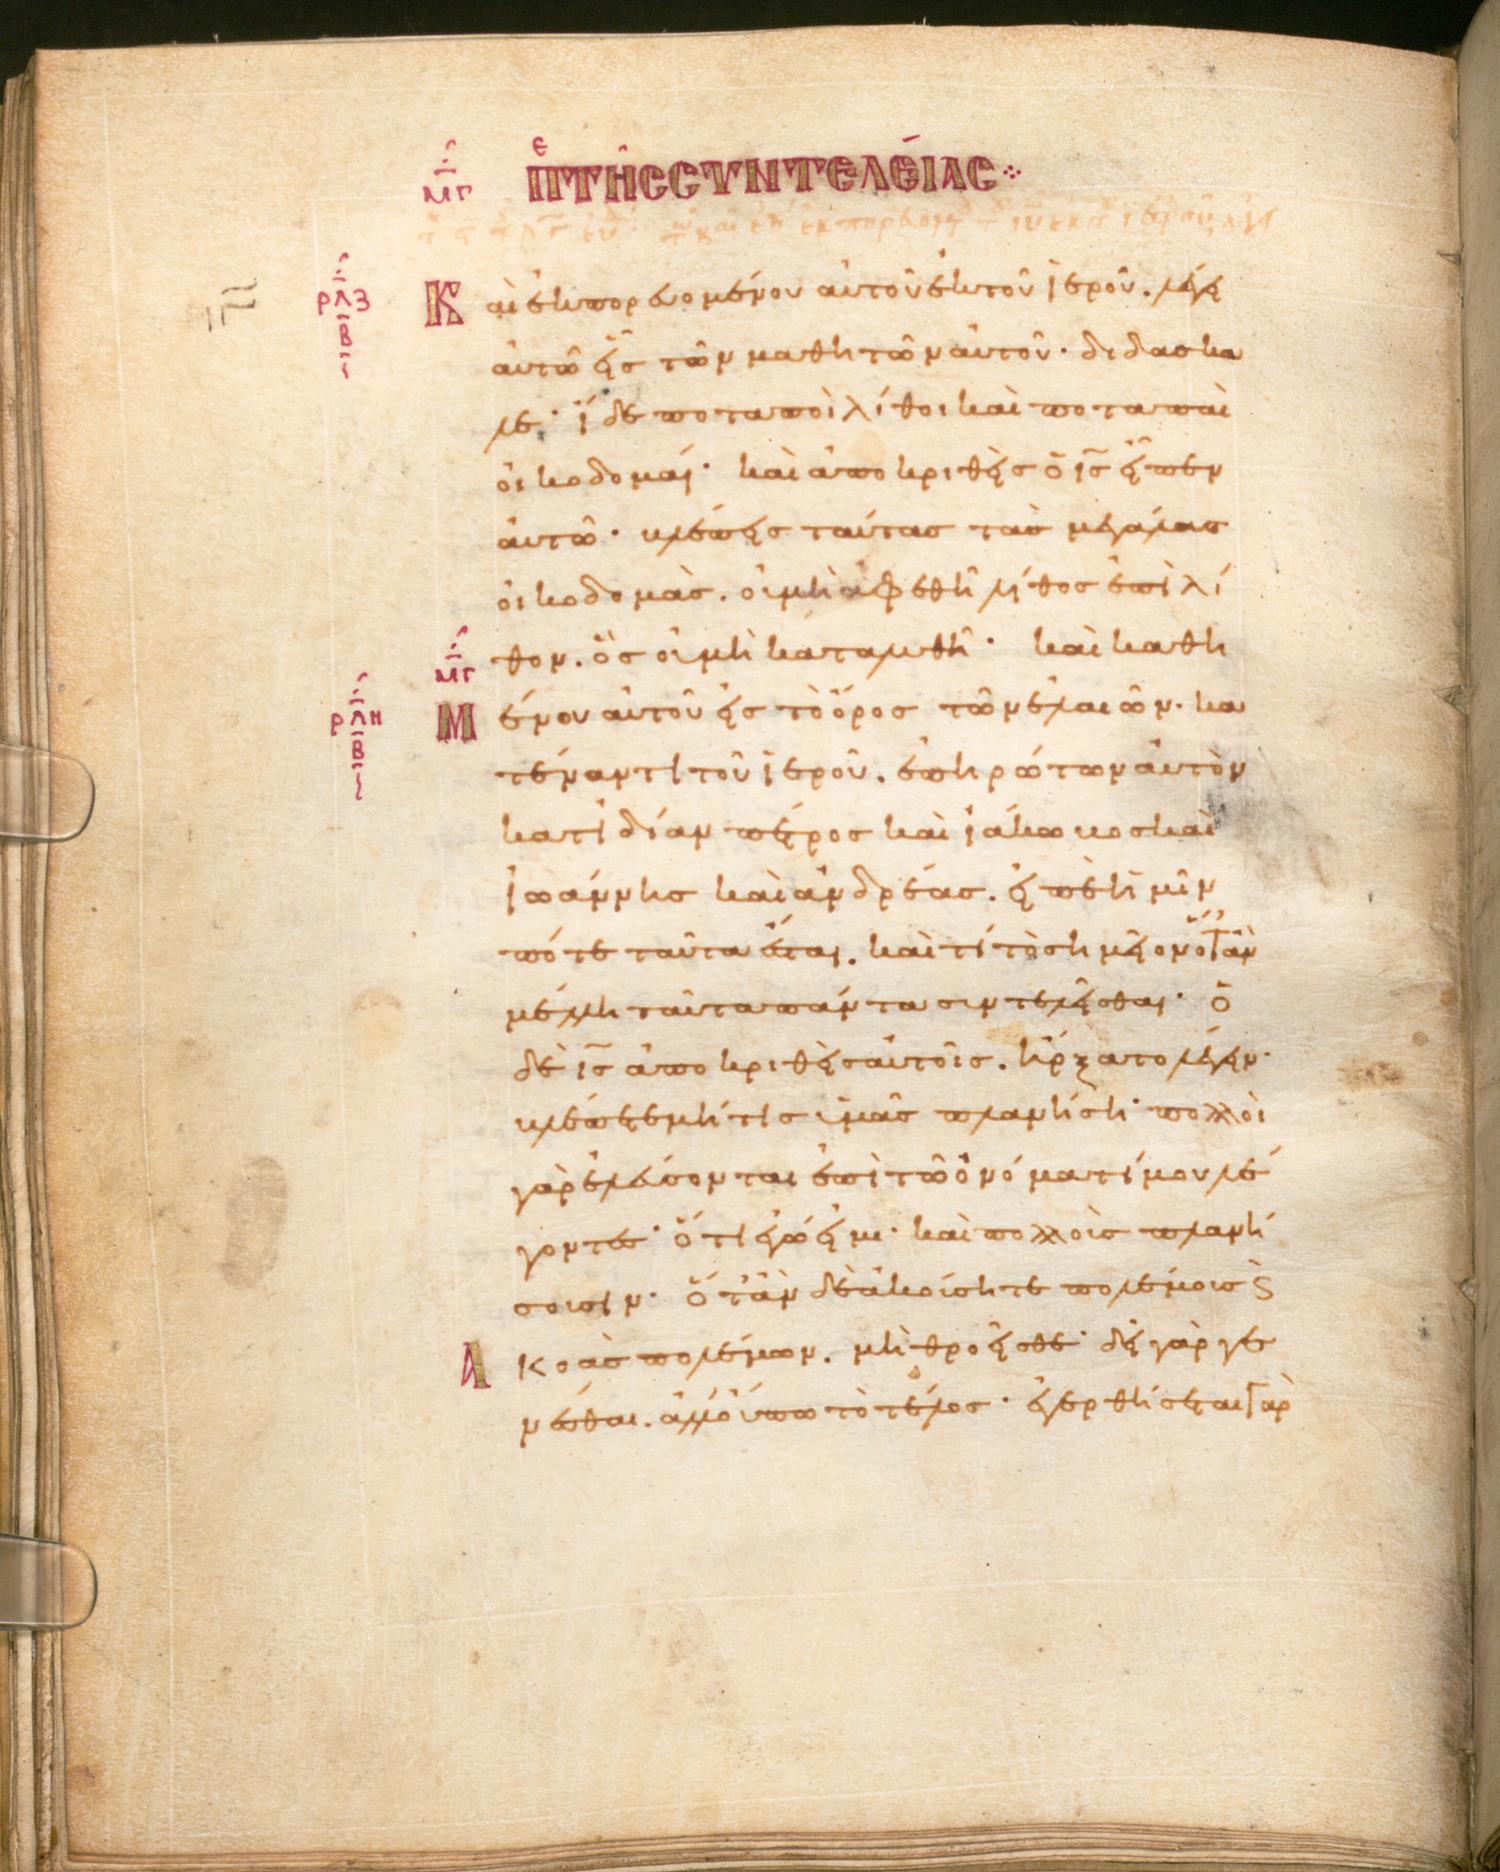 μγ Πε ΤΗ͂Σ ΣΥΝΤΕΛΕΊΑΣ
ρλζ β Κ αὶ ἐκπορευομένου αὐτοῦ ἐκ τοῦ ἱεροῦ. λέγει
αὐτῶ εἷς τῶν μαθητῶν αὐτοῦ· διδάσκα
λε· ἴδε ποταποὶ λίθοι καὶ ποταπαὶ
οἰκοδομαί· καὶ ἀποκριθεὶς ὁ ις εἶπεν
αὐτῶ· βλέπεις ταύτας τὰς μεγάλας
οἰκοδομάς. οὐ μὴ ἀφεθῆ λίθος ἐπὶ λί
μγ θον. ὃς οὐ μὴ καταλυθῆ· καὶ καθη
ρλη β Μ ένου αὐτοῦ εἰς τὸ ὄρος τῶν ἐλαιῶν· κα
τέναντι τοῦ ἱεροῦ. ἐπηρώτων αὐτὸν
κατιδίαν πέτρος καὶ ἰάκωβος καὶ
ἰωάννης καὶ ἀνδρέας. εἰπὲ ἡμῖν
πότε ταῦτα ἔσται. καὶ τί τὸ σημεῖον ὅταν
μέλλη ταῦτα πάντα συντελεῖσθαι· ὁ
δὲ ις ἀποκριθεὶς αὐτοῖς. ἤρξατο λέγειν·
βλέπετε μή τις ὑμᾶς πλανήση· πολλοὶ
γὰρ ἐλεύσονται ἐπὶ τῶ ὀνόματί μου λέ
γοντες· ὅτι ἐγώ εἰμι· καὶ πολλοὺς πλανή
σουσιν· ὅταν δὲ ἀκούσητε πολέμους ϗ
Α κοὰς πολέμων. μὴ θροεῖσθε· δεῖ γὰρ γε
νέσθαι. ἀλλ' οὔπω τὸ τέλος· ἐγερθήσεται γὰρ